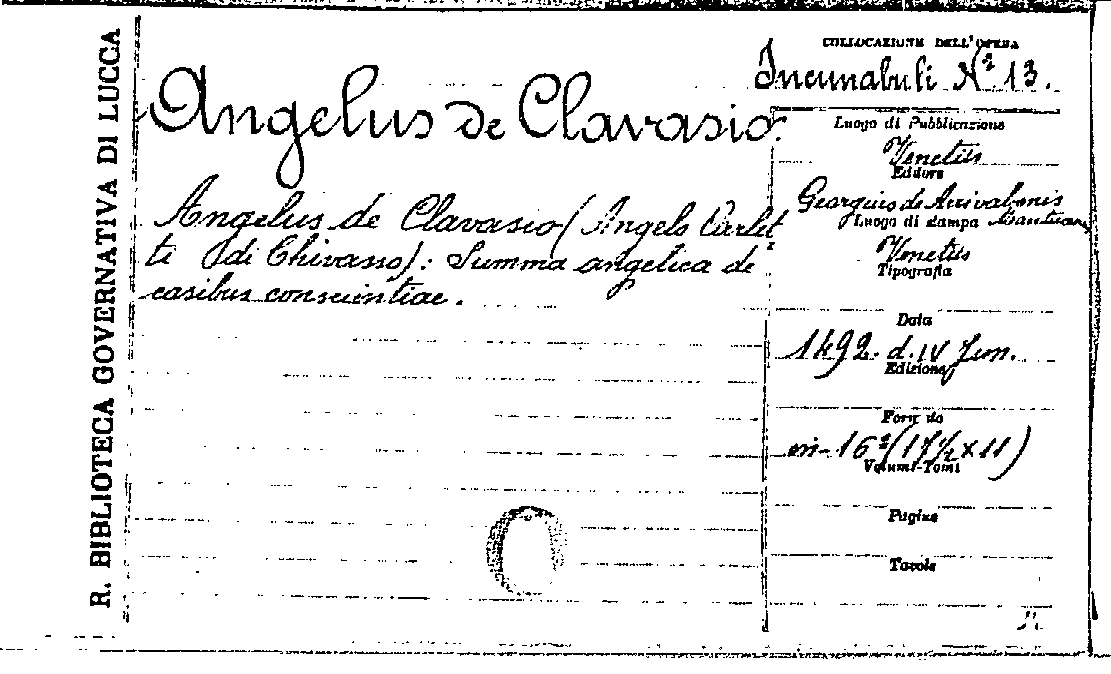 R. BIBLIOTECA GOVERNATIVA DI LUCCA
Angelus de Clavasio.
Angelus de Clavasio (Angelo Carlet
ti di Chivasso): Summa angelica de
casibus conscientiae.
COLLOCAZIONE DELL'OPERA
Incunabuli Nº 13.
Luogo di Pubblicazione
Venetiis
Editore
Georgius de Arrivabenis
Luogo di stampa Mantuan
Venetiis
Tipografia
Data
1492. d. IV Jun.
Edizione
Formato
in-16º (17½ x 11)
Volumi-Tomi
Pagine
Tavole